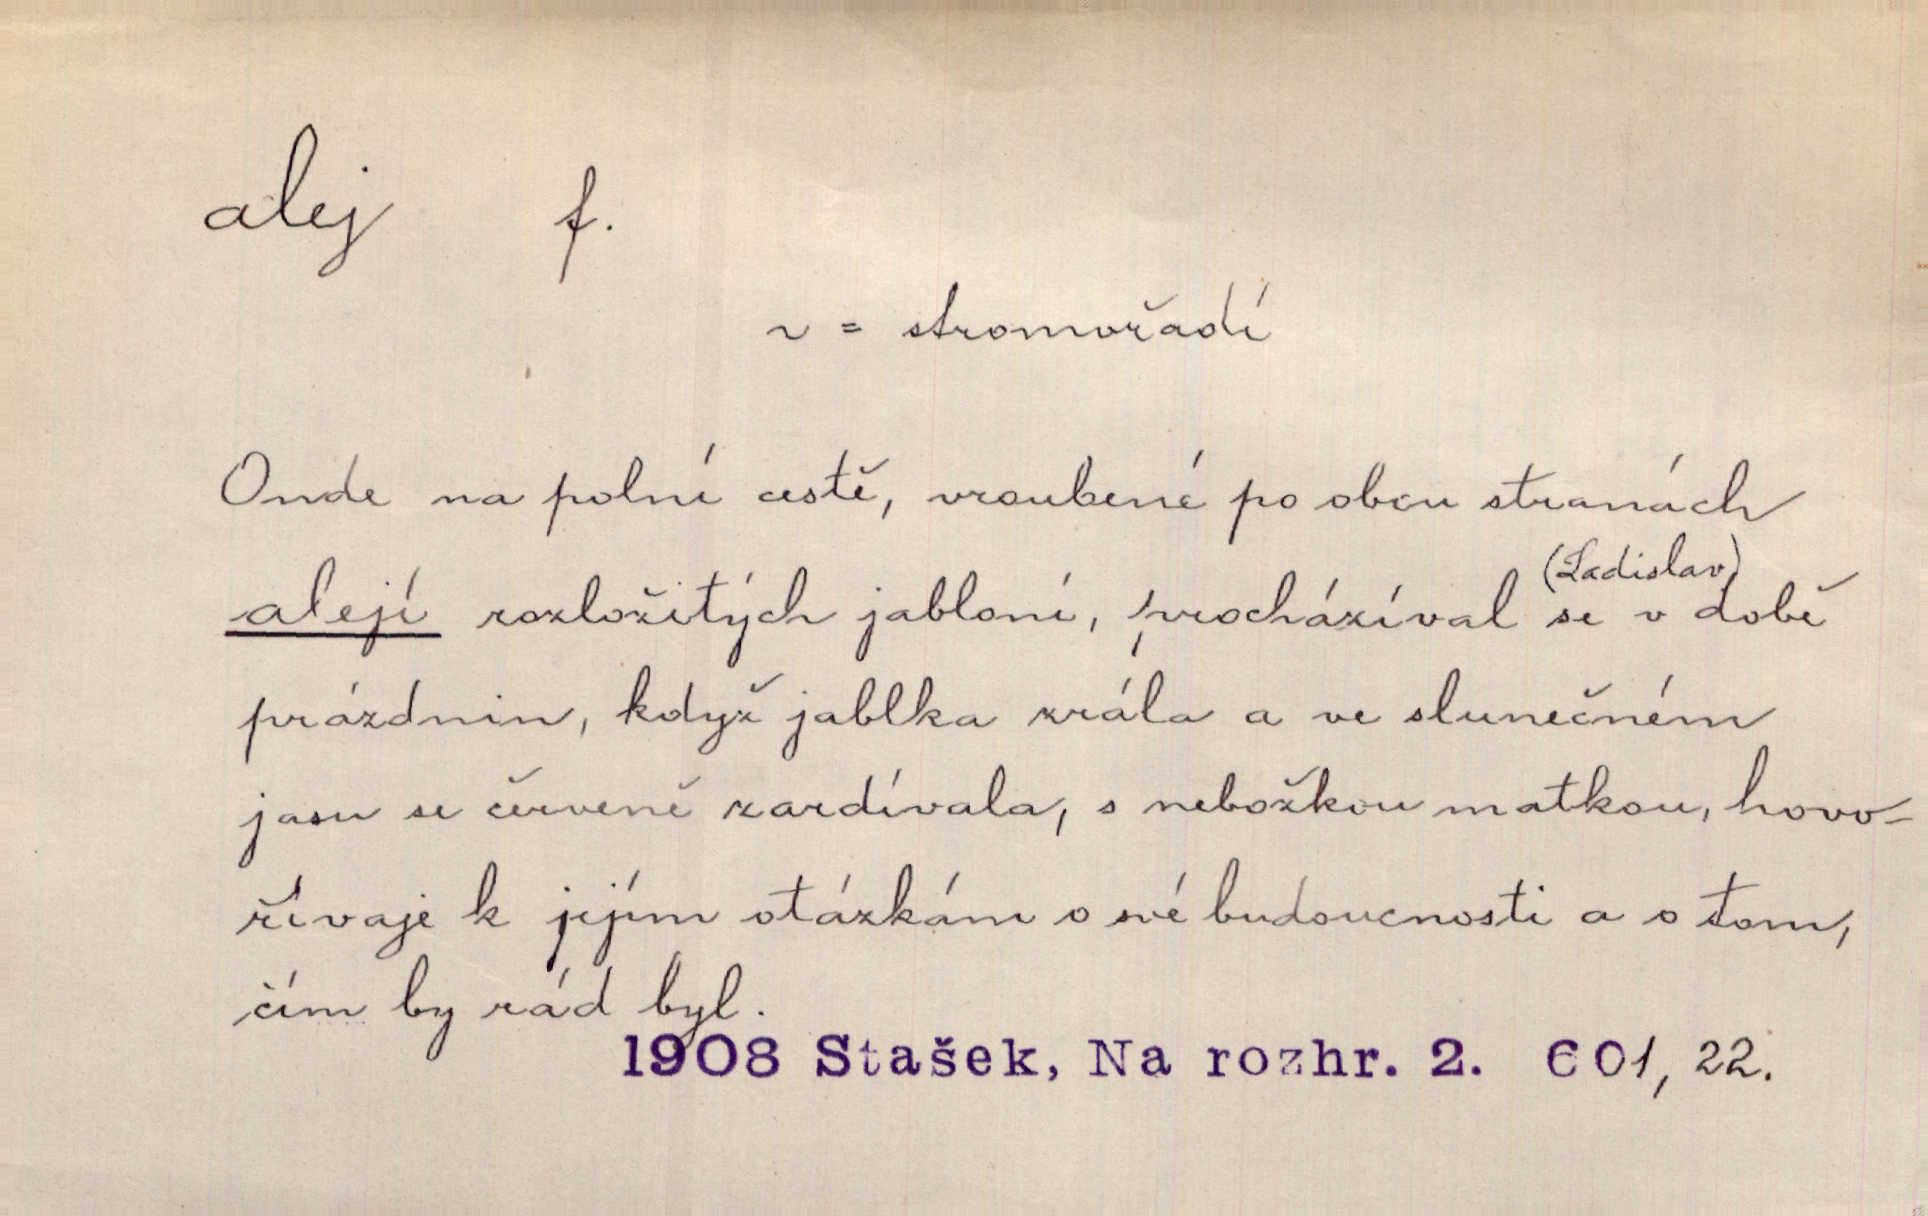 alej f.
~ = stromořadí
Onde na polní cestě, vroubené po obou stranách
alejí rozložitých jabloní, procházíval (Ladislav) se v době
prázdnin, když jablka zrála a ve slunečném
jasu se červeně zardívala, s nebožkou matkou, hovo-
řívaje k jejím otázkám o své budoucnosti a o tom,
čím by rád byl.
1908 Stašek, Na rozhr. 2. 601, 22.